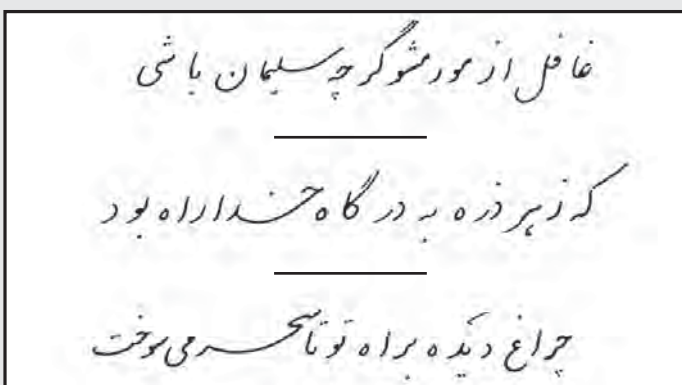 غافل از مور مشو گر چه سلیمان باشی
که ز هر ذره به درگاه خدا راه بود
چراغ دیده براه تو تا سحر می سوخت